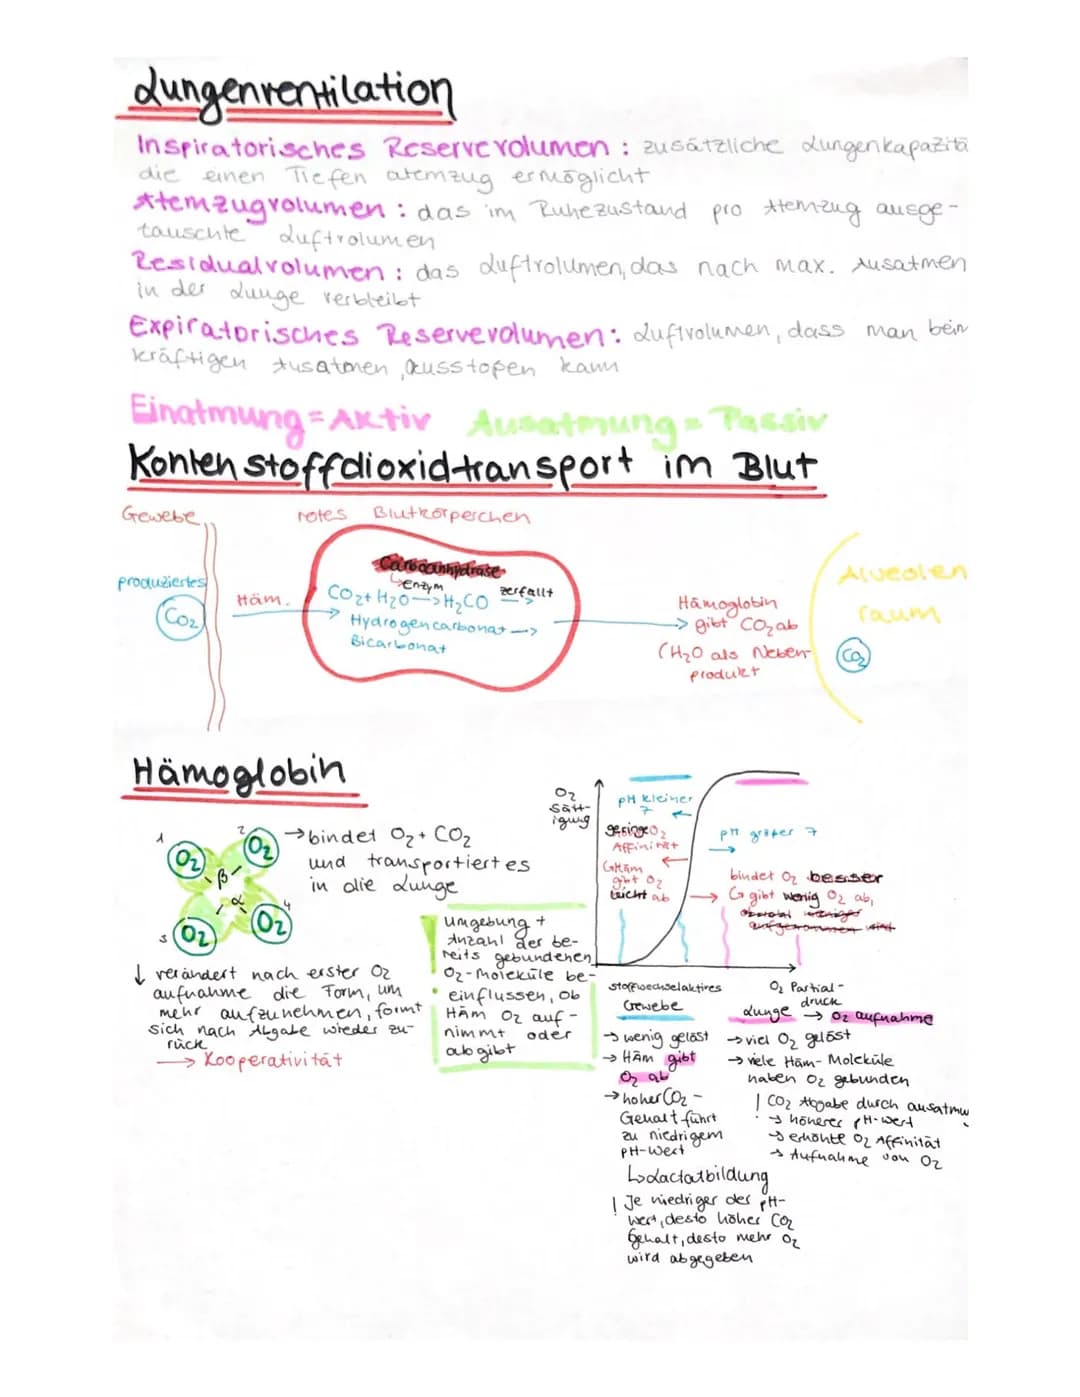 Lungenventilation
Inspiratorisches Reservevolumen : zusätzliche Lungenkapazitä
die einen Tiefen atemzug ermöglicht
Atemzugvolumen : das im Ruhezustand pro Atemzug ausge-
tauschte Luftvolumen
Residualvolumen : das Luftvolumen, das nach max. Ausatmen
in der Lunge verbleibt
Expiratorisches Reservevolumen : Luftvolumen, dass man beim
kräftigen Ausatmen, ausstopen kann
Einatmung = Aktiv Ausatmung = Passiv
Kohlenstoffdioxidtransport im Blut
Gewebe rotes Blutkörperchen
Carboanhydrase
Enzym
produziertes
CO2
Häm.
CO2 + H2O → H2CO zerfällt →
Hydrogencarbonat →
Bicarbonat
Hämoglobin
→ gibt CO2 ab
(H2O als Neben-
produkt
Alveolen
raum
CO2
Hämoglobin
1 O2 2 O2
β
α
3 O2 4 O2
→ bindet O2 + CO2
und transportiert es
in die Lunge
↓ verändert nach erster O2
aufnahme die Form, um
mehr aufzunehmen, formt
sich nach Abgabe wieder zu-
rück
→ Kooperativität
! Umgebung +
Anzahl der be-
reits gebundenen
O2-Moleküle be-
einflussen, ob
Häm O2 auf-
nimmt oder
abgibt
O2
sätt-
igung
pH kleiner
7 ←
geringe O2
Affinität
←
↳Häm
gibt O2
leicht ab
pH größer 7
→
bindet O2 besser
→ ↳ gibt wenig O2 ab,
obwohl weniger
aufgenommen wird
O2 Partial-
druck
stoffwechselaktives
Gewebe
→ wenig gelöst
→ Häm gibt
O2 ab
→ hoher CO2-
Gehalt führt
zu niedrigem
pH-Wert
↳ Lactatbildung
! Je niedriger der pH-
Wert, desto höher CO2
Gehalt, desto mehr O2
wird abgegeben
Lunge → O2 aufnahme
→ viel O2 gelöst
→ viele Häm-Moleküle
haben O2 gebunden
! CO2 Abgabe durch ausatmu
→ höherer pH-wert
→ erhöhte O2 Affinität
→ Aufnahme von O2